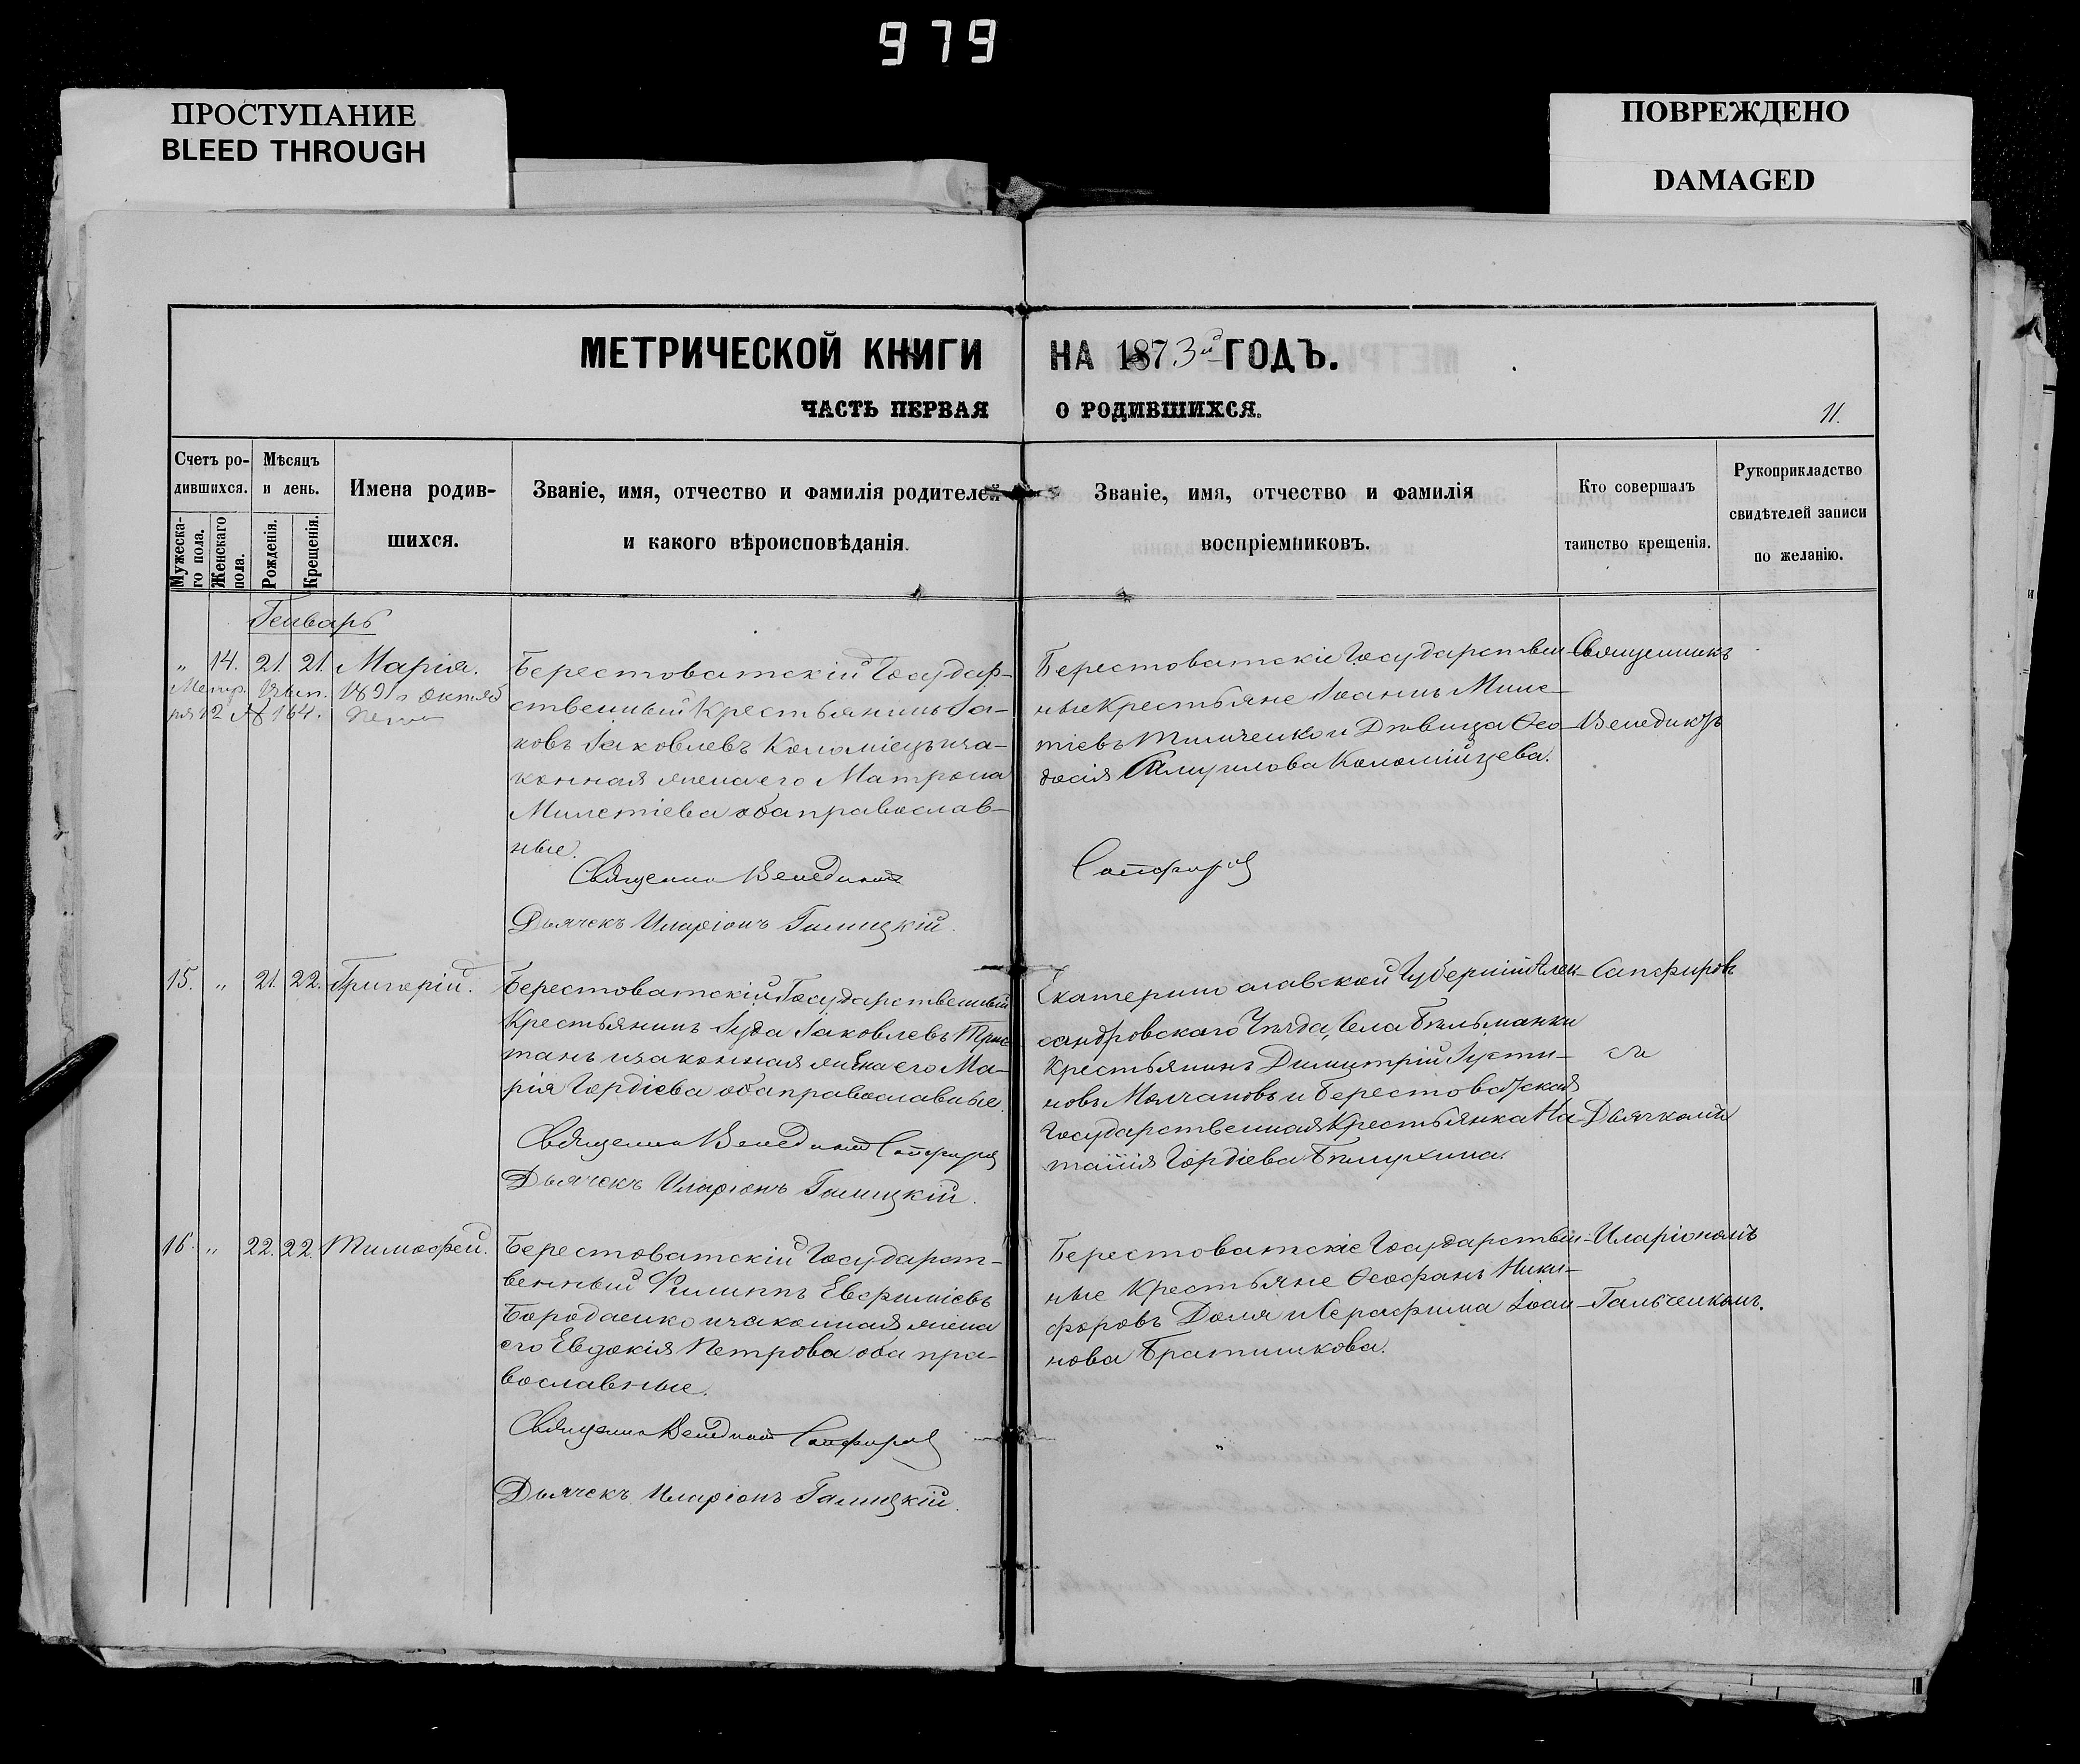 979
ПРОСТУПАНИЕ
BLEED THROUGH
ПОВРЕЖДЕНО
DAMAGED
МЕТРИЧЕСКОЙ КНИГИ НА 1873й ГОДЪ.
ЧАСТЬ ПЕРВАЯ О РОДИВШИХСЯ.
11.
Счетъ ро-
дившихся.
Мужеска-
го пола.
Женскаго
пола.
Мѣсяцъ
и день.
Рожденія.
Крещенія.
Имена родив-
шихся.
Званіе, имя, отчество и фамилія родителей
и какого вѣроисповѣданія.
Званіе, имя, отчество и фамилія
воспріемниковъ.
Кто совершалъ
таинство крещенія.
Рукоприкладство
свидѣтелей записи
по желанію.
Генварь
" 14. 21. 21. Марія.
Берестоватскій Государ-
ственный Крестьянинъ Іа-
ковъ Іаковлевъ Коломіецъ и за-
конная жена его Матрона
Милетіева оба православ-
ные.
Священникъ Венедиктъ Сапфировъ
Дьячекъ Иларіонъ Галицкій.
Берестоватскіе Государствен-
ные Крестьяне Іоаннъ Миле-
тіевъ Тимченко и Дѣвица Ѳео-
досія Самуилова Коломійцева.
Священникъ
Венедиктъ
15. " 21. 22. Григорій.
Берестоватскій Государственный
Крестьянинъ Іуда Іаковлевъ Трис-
танъ и законная жена его Ма-
рія Гордіева оба православные.
Священникъ Венедиктъ Сапфировъ
Дьячекъ Иларіонъ Галицкій.
Екатеринославской Губерніи Алек-
сандровскаго Уѣзда, Села Бѣльманки
Крестьянинъ Димитрій Іусти-
новъ Молчановъ и Берестоватская
Государственная Крестьянка На-
талія Гордіева Бѣлухина.
Сапфировъ
съ
Дьячкомъ
16. " 22. 22. Тимоѳей.
Берестоватскій Государст-
венный Филиппъ Евфиміевъ
Бородаенко и законная жена
его Евдокія Петрова оба пра-
вославные.
Священникъ Венедиктъ Сапфировъ
Дьячекъ Иларіонъ Галицкій.
Берестоватскіе Государствен-
ные Крестьяне Ѳеофанъ Ники-
форовъ Доля и Серафима Іоан-
нова Братишкова.
Иларіономъ
Гальченкомъ.